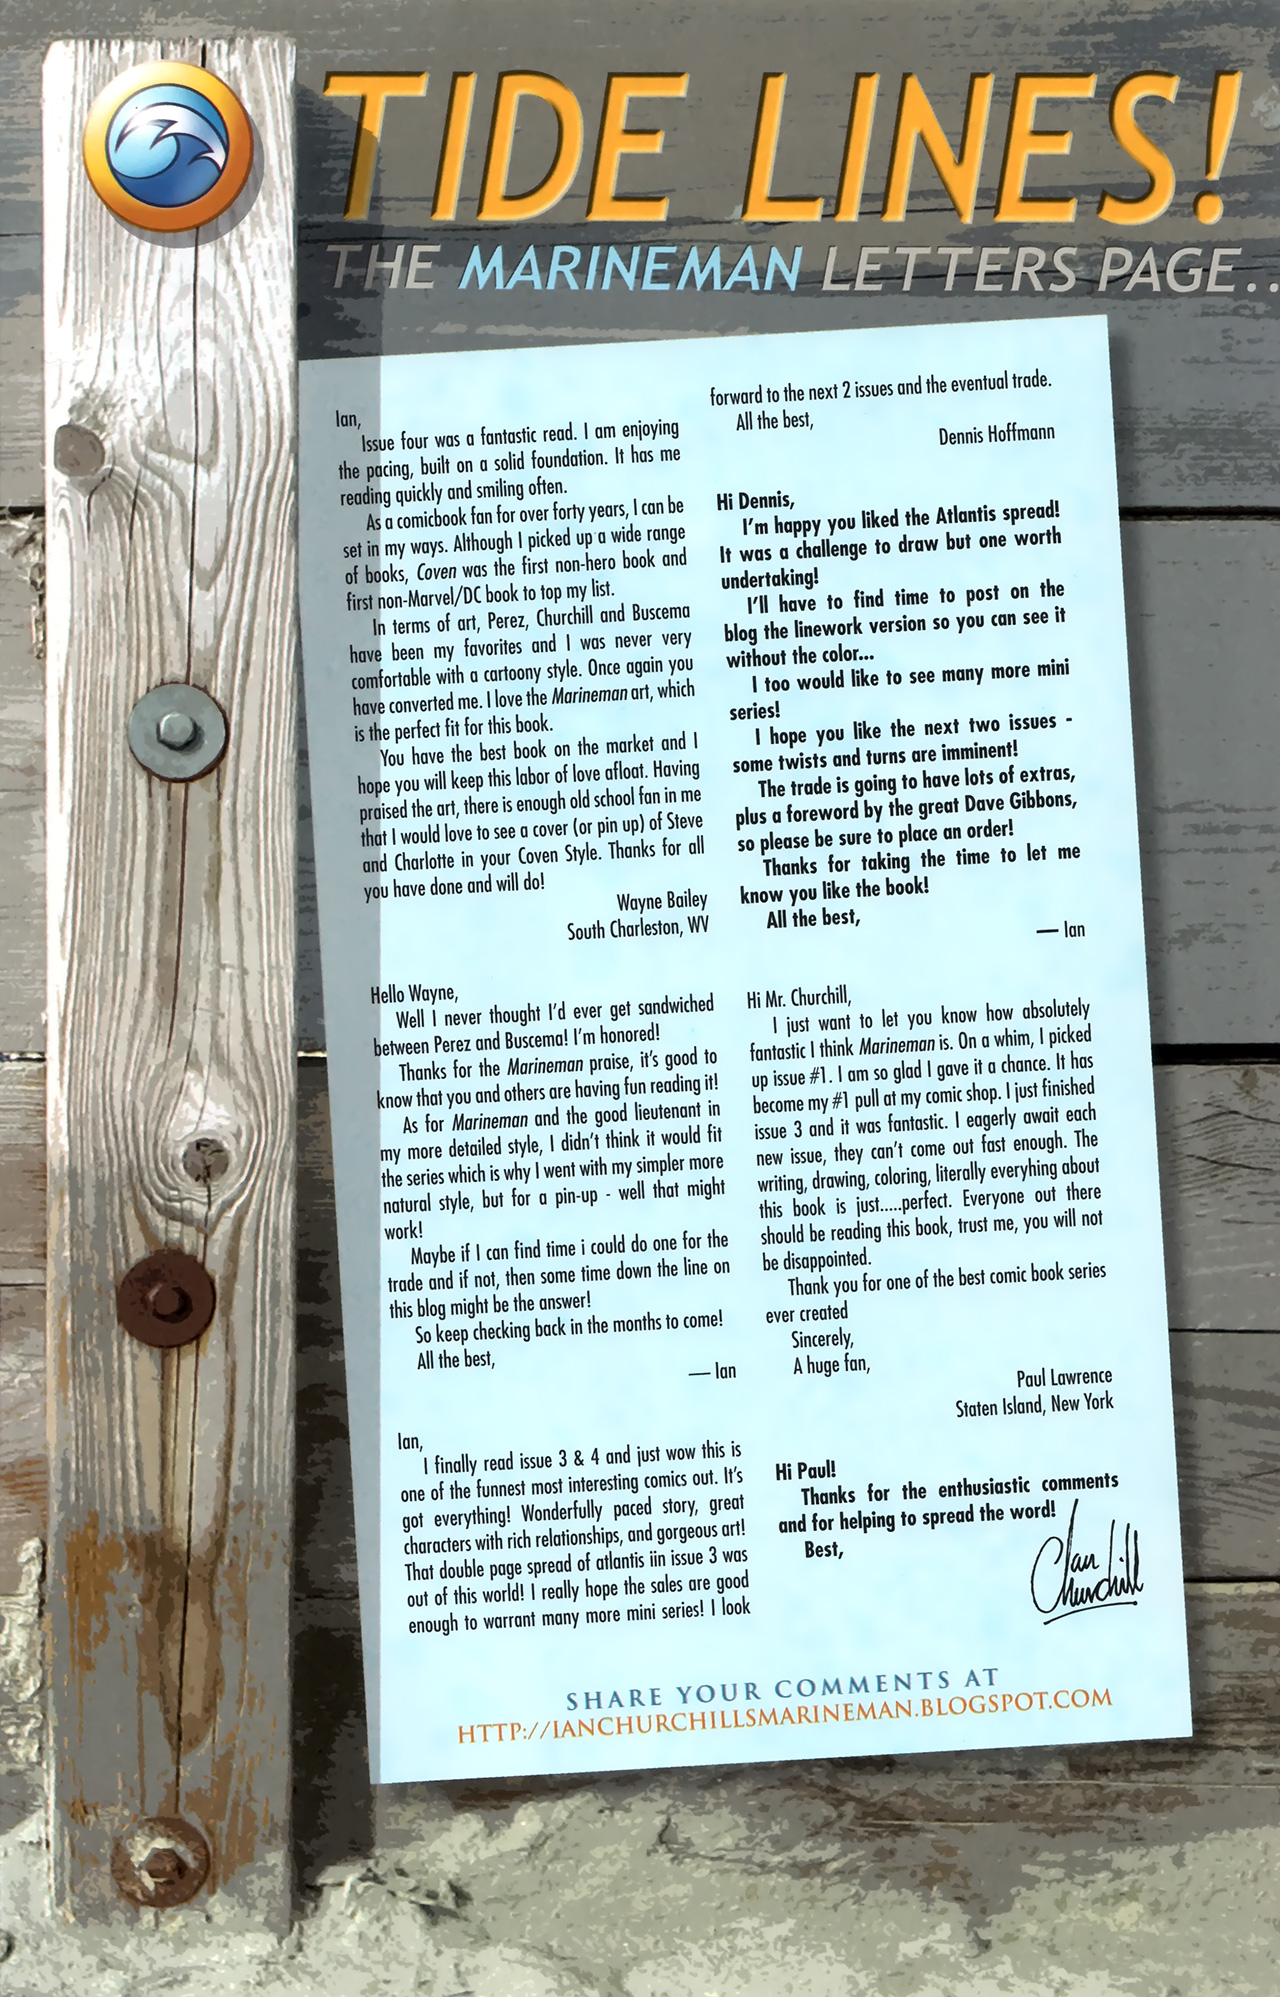 TIDE LINES!
THE MARINEMAN LETTERS PAGE..
Ian,
Issue four was a fantastic read. I am enjoying
the pacing, built on a solid foundation. It has me
reading quickly and smiling often.
As a comicbook fan for over forty years, I can be
set in my ways. Although I picked up a wide range
of books, Coven was the first non-hero book and
first non-Marvel/DC book to top my list.
In terms of art, Perez, Churchill and Buscema
have been my favorites and I was never very
comfortable with a cartoony style. Once again you
have converted me. I love the Marineman art, which
is the perfect fit for this book.
You have the best book on the market and I
hope you will keep this labor of love afloat. Having
praised the art, there is enough old school fan in me
that I would love to see a cover (or pin up) of Steve
and Charlotte in your Coven Style. Thanks for all
you have done and will do!
Wayne Bailey
South Charleston, WV
Hello Wayne,
Well I never thought I'd ever get sandwiched
between Perez and Buscema! I'm honored!
Thanks for the Marineman praise, it's good to
know that you and others are having fun reading it!
As for Marineman and the good lieutenant in
my more detailed style, I didn't think it would fit
the series which is why I went with my simpler more
natural style, but for a pin-up - well that might
work!
Maybe if I can find time i could do one for the
trade and if not, then some time down the line on
this blog might be the answer!
So keep checking back in the months to come!
All the best,
— Ian
Ian,
I finally read issue 3 & 4 and just wow this is
one of the funnest most interesting comics out. It's
got everything! Wonderfully paced story, great
characters with rich relationships, and gorgeous art!
That double page spread of atlantis iin issue 3 was
out of this world! I really hope the sales are good
enough to warrant many more mini series! I look
forward to the next 2 issues and the eventual trade.
All the best,
Dennis Hoffmann
Hi Dennis,
I'm happy you liked the Atlantis spread!
It was a challenge to draw but one worth
undertaking!
I'll have to find time to post on the
blog the linework version so you can see it
without the color...
I too would like to see many more mini
series!
I hope you like the next two issues -
some twists and turns are imminent!
The trade is going to have lots of extras,
plus a foreword by the great Dave Gibbons,
so please be sure to place an order!
Thanks for taking the time to let me
know you like the book!
All the best,
— Ian
Hi Mr. Churchill,
I just want to let you know how absolutely
fantastic I think Marineman is. On a whim, I picked
up issue #1. I am so glad I gave it a chance. It has
become my #1 pull at my comic shop. I just finished
issue 3 and it was fantastic. I eagerly await each
new issue, they can't come out fast enough. The
writing, drawing, coloring, literally everyhing about
this book is just.....perfect. Everyone out there
should be reading this book, trust me, you will not
be disappointed.
Thank you for one of the best comic book series
ever created
Sincerely,
A huge fan,
Paul Lawrence
Staten Island, New York
Hi Paul!
Thanks for the enthusiastic comments
and for helping to spread the word!
Best,
Ian
Churchill
SHARE YOUR COMMENTS AT
HTTP://IANCHURCHILLSMARINEMAN.BLOGSPOT.COM